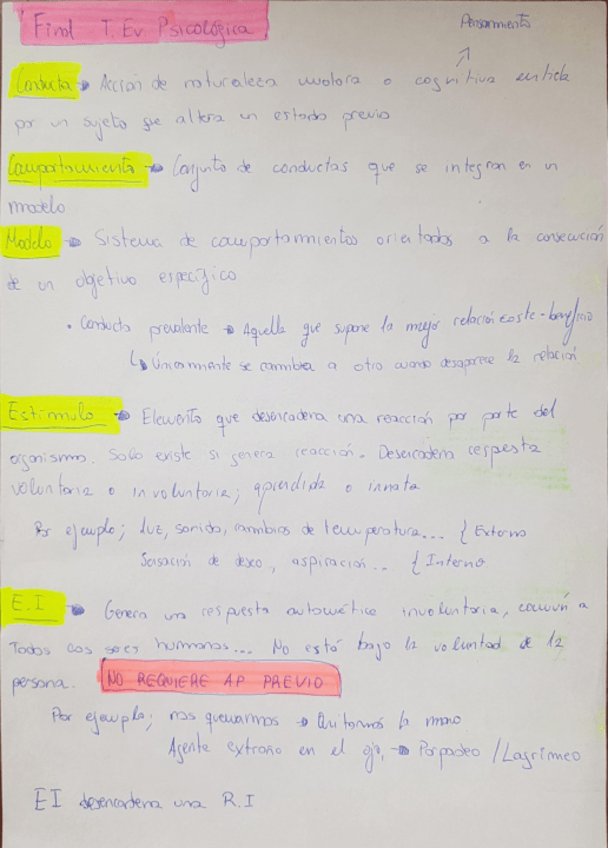 Final T. Ev Psicológica
Pensamiento
Conducta → Acción de naturaleza motora o cognitiva emitida
por un sujeto que altera un estado previo
Comportamiento → Conjunto de conductas que se integran en un
modelo
Modelo → Sistema de comportamientos orientados a la consecución
de un objetivo específico
• Conducta prevalente → Aquella que supone la mejor relación coste-beneficio
↳ Únicamente se cambia a otro cuando desaparece la relación
Estímulo → Elemento que desencadena una reacción por parte del
organismo. Solo existe si genera reacción. Desencadena respesta
voluntaria o involuntaria; aprendida o innata
Por ejemplo; luz, sonido, cambios de temperatura... { Externo
Sensación de deseo, aspiración... { Interno
E.I → Genera una respuesta automática involuntaria, común a
Todos los seres humanos... No está bajo la voluntad de la
persona. NO REQUIERE AP PREVIO
Por ejemplo; nos quemamos → Quitamos la mano
Agente extraño en el ojo, → Parpadeo / Lagrimeo
EI desencadena una R.I